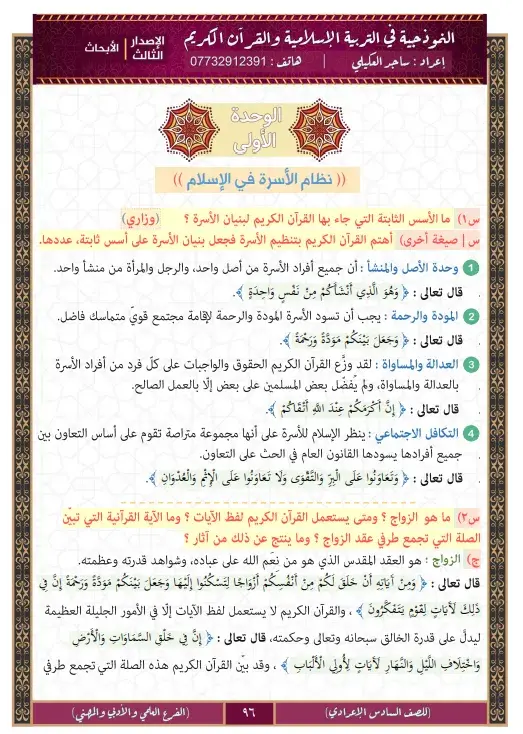 النموذجية في التربية الإسلامية والقرآن الكريم
إعداد : ساجر العكيلي | هاتف : 07732912391
الإصدار الثالث | الأبحاث
الوحدة
الأولى
(( نظام الأسرة في الإسلام ))
س١) ما الأسس الثابتة التي جاء بها القرآن الكريم لبنيان الأسرة ؟ (وزاري)
س | صيغة أخرى) أهتم القرآن الكريم بتنظيم الأسرة فجعل بنيان الأسرة على أسس ثابتة، عددها.
1 وحدة الأصل والمنشأ : أن جميع أفراد الأسرة من أصل واحد، والرجل والمرأة من منشأ واحد.
. قال تعالى : ﴿ وَهُوَ الَّذِي أَنْشَأَكُمْ مِنْ نَفْسٍ وَاحِدَةٍ ﴾.
2 المودة والرحمة : يجب أن تسود الأسرة المودة والرحمة لإقامة مجتمع قويّ متماسك فاضل.
. قال تعالى : ﴿ وَجَعَلَ بَيْنَكُمْ مَوَدَّةً وَرَحْمَةً ﴾.
3 العدالة والمساواة : لقد وزَّع القرآن الكريم الحقوق والواجبات على كلّ فرد من أفراد الأسرة
. بالعدالة والمساواة، ولم يُفضّل بعض المسلمين على بعض إلّا بالعمل الصالح.
. قال تعالى : ﴿ إِنَّ أَكْرَمَكُمْ عِنْدَ اللَّهِ أَتْقَاكُمْ ﴾.
4 التكافل الاجتماعي : ينظر الإسلام للأسرة على أنها مجموعة متراصة تقوم على أساس التعاون بين
. جميع أفرادها يسودها القانون العام في الحث على التعاون.
. قال تعالى : ﴿ وَتَعَاوَنُوا عَلَى الْبِرِّ وَالتَّقْوَى وَلَا تَعَاوَنُوا عَلَى الْإِثْمِ وَالْعُدْوَانِ ﴾.
س٢) ما هو الزواج ؟ ومتى يستعمل القرآن الكريم لفظ الآيات ؟ وما الآية القرآنية التي تبيّن
الصلة التي تجمع طرفي عقد الزواج ؟ وما ينتج عن ذلك من آثار ؟
ج) الزواج : هو العقد المقدس الذي هو من نِعَم الله على عباده، وشواهد قدرته وعظمته.
قال تعالى : ﴿ وَمِنْ آيَاتِهِ أَنْ خَلَقَ لَكُمْ مِنْ أَنْفُسِكُمْ أَزْوَاجًا لِتَسْكُنُوا إِلَيْهَا وَجَعَلَ بَيْنَكُمْ مَوَدَّةً وَرَحْمَةً إِنَّ فِي
ذَلِكَ لَآيَاتٍ لِقَوْمٍ يَتَفَكَّرُونَ ﴾ ، والقرآن الكريم لا يستعمل لفظ الآيات إلّا في الأمور الجليلة العظيمة
ليدلَّ على قدرة الخالق سبحانه وتعالى وحكمته، قال تعالى : ﴿ إِنَّ فِي خَلْقِ السَّمَاوَاتِ وَالْأَرْضِ
وَاخْتِلَافِ اللَّيْلِ وَالنَّهَارِ لَآيَاتٍ لِأُولِي الْأَلْبَابِ ﴾ ، وقد بيّن القرآن الكريم هذه الصلة التي تجمع طرفي
(للصف السادس الإعدادي) ٩٦ (الفرع العلمي والأدبي والمهني)